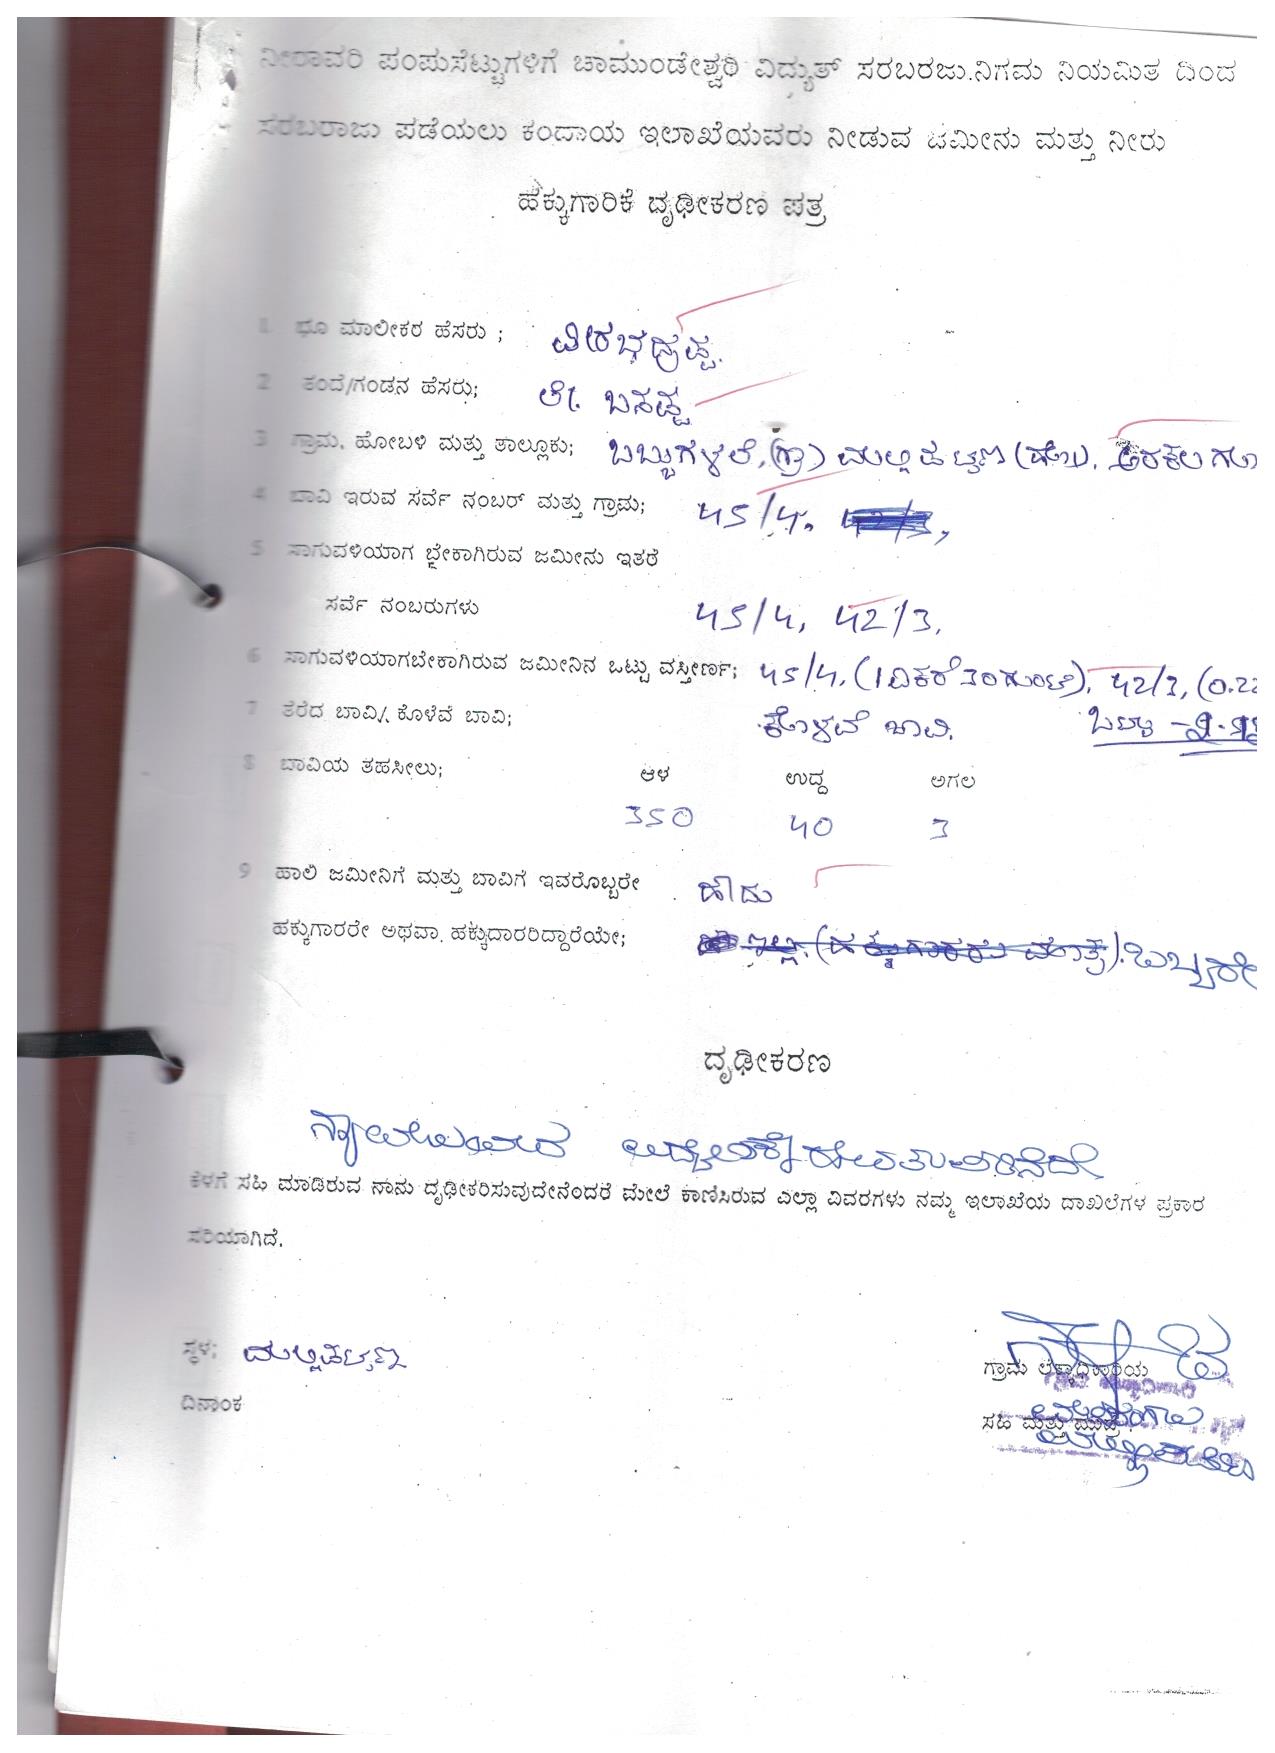 ನೀರಾವರಿ ಪಂಪುಸೆಟ್ಟುಗಳಿಗೆ ಚಾಮುಂಡೇಶ್ವರಿ ವಿದ್ಯುತ್ ಸರಬರಜು.ನಿಗಮ ನಿಯಮಿತ ದಿಂದ
ಸರಬರಾಜು ಪಡೆಯಲು ಕಂದಾಯ ಇಲಾಖೆಯವರು ನೀಡುವ ಜಮೀನು ಮತ್ತು ನೀರು
ಹಕ್ಕುಗಾರಿಕೆ ದೃಢೀಕರಣ ಪತ್ರ
1 ಭೂ ಮಾಲೀಕರ ಹೆಸರು ; ವೀರಭದ್ರಪ್ಪ.
2 ತಂದೆ/ಗಂಡನ ಹೆಸರು; ಲೇ. ಬಸಪ್ಪ
3 ಗ್ರಾಮ, ಹೋಬಳಿ ಮತ್ತು ತಾಲ್ಲೂಕು; ಬಬ್ಬುಗಳಲೆ, (ಗ್ರಾ) ಮಲ್ಲಿಪಟ್ಟಣ (ಹೋ).
4 ಬಾವಿ ಇರುವ ಸರ್ವೆ ನಂಬರ್ ಮತ್ತು ಗ್ರಾಮ; 45/4.
5 ಸಾಗುವಳಿಯಾಗ ಬೇಕಾಗಿರುವ ಜಮೀನು ಇತರೆ
ಸರ್ವೆ ನಂಬರುಗಳು 45/4, 42/3.
6 ಸಾಗುವಳಿಯಾಗಬೇಕಾಗಿರುವ ಜಮೀನಿನ ಒಟ್ಟು ವಸ್ತೀರ್ಣ; 45/4. (1 ಎಕರೆ 30 ಗುಂಟೆ). 42/3, (0.22
7 ತೆರೆದ ಬಾವಿ/ ಕೊಳೆವೆ ಬಾವಿ; ಕೊಳವೆ ಬಾವಿ.
8 ಬಾವಿಯ ತಹಸೀಲು; ಆಳ ಉದ್ದ ಅಗಲ
350 40 3
9 ಹಾಲಿ ಜಮೀನಿಗೆ ಮತ್ತು ಬಾವಿಗೆ ಇವರೊಬ್ಬರೇ ಹೌದು
ಹಕ್ಕುಗಾರರೇ ಅಥವಾ. ಹಕ್ಕುದಾರರಿದ್ದಾರೆಯೇ; ಇಲ್ಲ. (ಹಕ್ಕುಗಾರರು ಮಾತ್ರ). ಒಬ್ಬರೇ
ದೃಢೀಕರಣ
ಕೆಳಗೆ ಸಹಿ ಮಾಡಿರುವ ನಾನು ದೃಢೀಕರಿಸುವುದೇನೆಂದರೆ ಮೇಲೆ ಕಾಣಿಸಿರುವ ಎಲ್ಲಾ ವಿವರಗಳು ನಮ್ಮ ಇಲಾಖೆಯ ದಾಖಲೆಗಳ ಪ್ರಕಾರ
ಸರಿಯಾಗಿದೆ.
ಸ್ಥಳ; ಮಲ್ಲಿಪಟ್ಟಣ
ಗ್ರಾಮ ಲೆಕ್ಕಾಧಿಕಾರಿಯ
ದಿನಾಂಕ
ಸಹಿ ಮತ್ತು ಮುದ್ರೆ